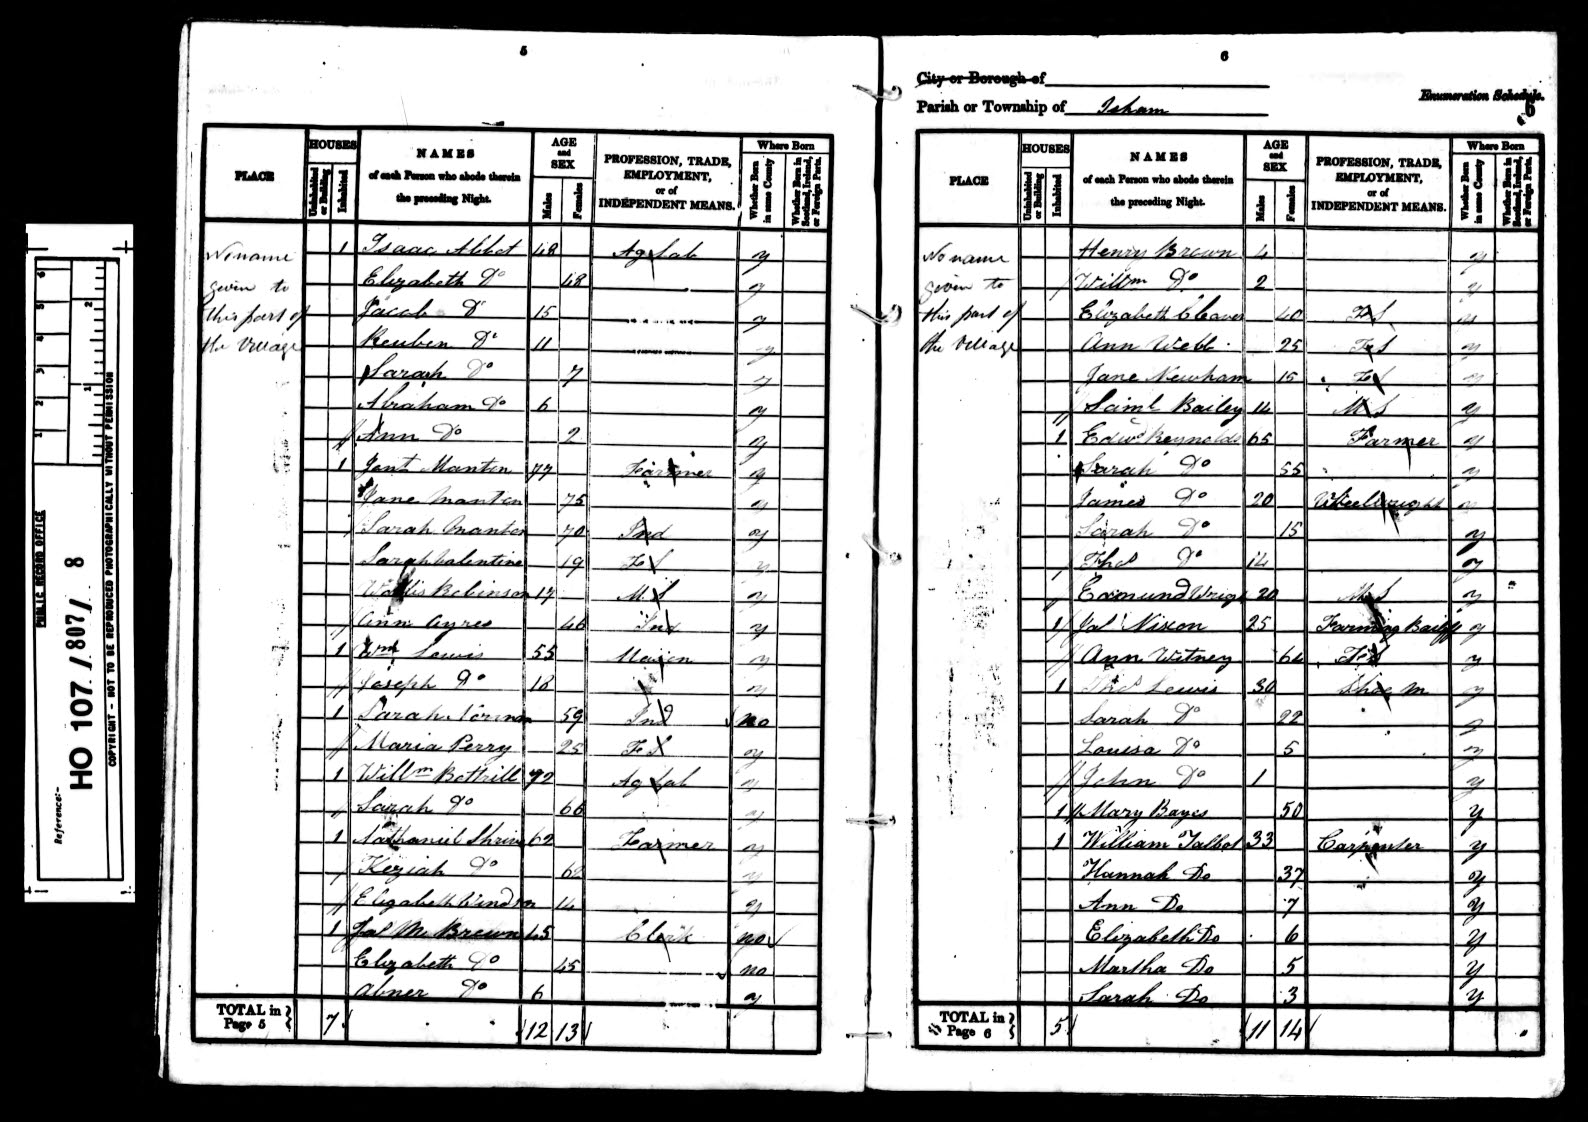 5
PLACE
HOUSES
Uninhabited or Building
Inhabited
NAMES
of each Person who abode therein
the preceding Night.
AGE
and
SEX
Males
Females
PROFESSION, TRADE,
EMPLOYMENT,
or of
INDEPENDENT MEANS.
Where Born
Whether Born in same County
Whether Born in Scotland, Ireland, or Foreign Parts.
No name
given to
this part of
the Village
1 Isaac Abbot 48 Ag Lab y
Elizabeth Do 48 y
Jacob Do 15 y
Reuben Do 11 y
Sarah Do 7 y
Abraham Do 6 y
Ann Do 2 y
1 Manton 77 Farmer y
Jane Manton 75 y
Sarah Manton 70 Ind y
Sarah Valentine 19 F S y
Robinson 17 M S y
Ann Ayres 46 Ind y
1 Wm Lewis 55 Mason y
Joseph Do 18 y
1 Sarah 59 Ind no
Maria Perry 25 F S y
1 Willm Bothrill 72 Ag Lab y
Sarah Do 66 y
1 Nathaniel 62 Farmer y
Keziah Do y
Elizabeth 14 y
1 Jas M Brown 45 Clerk no
Elizabeth Do 45 no
Abner Do 6 y
TOTAL in Page 5 7 12 13
6
City or Borough of
Parish or Township of Isham
Enumeration Schedule.
5
PLACE
HOUSES
Uninhabited or Building
Inhabited
NAMES
of each Person who abode therein
the preceding Night.
AGE
and
SEX
Males
Females
PROFESSION, TRADE,
EMPLOYMENT,
or of
INDEPENDENT MEANS.
Where Born
Whether Born in same County
Whether Born in Scotland, Ireland, or Foreign Parts.
No name
given to
this part of
the Village
Henry Brown 4 y
Willm Do 2 y
Elizabeth Cleaver 40 F S
Ann Webb 25 F S y
Jane Newham 15 F S y
Saml Bailey 14 M S y
1 Edwd Reynolds 65 Farmer y
Sarah Do 55 y
James Do 20 Wheelwright y
Sarah Do 15 y
Thos Do 14 y
Edmund 20 M S y
1 Jas Nixon 25 Farming Bailiff y
Ann Witney 64 F S y
1 Thos Lewis 30 Shoe m y
Sarah Do 22 y
Louisa Do 5 y
John Do 1 y
1 Mary Bayes 50 y
1 William Talbot 33 Carpenter y
Hannah Do 37 y
Ann Do 7 y
Elizabeth Do 6 y
Martha Do 5 y
Sarah Do 3 y
TOTAL in Page 6 5 11 14
PUBLIC RECORD OFFICE
1 2 3 4 5 6
1 2
Reference:-
HO 107 / 807 / 8
COPYRIGHT - NOT TO BE REPRODUCED PHOTOGRAPHICALLY WITHOUT PERMISSION